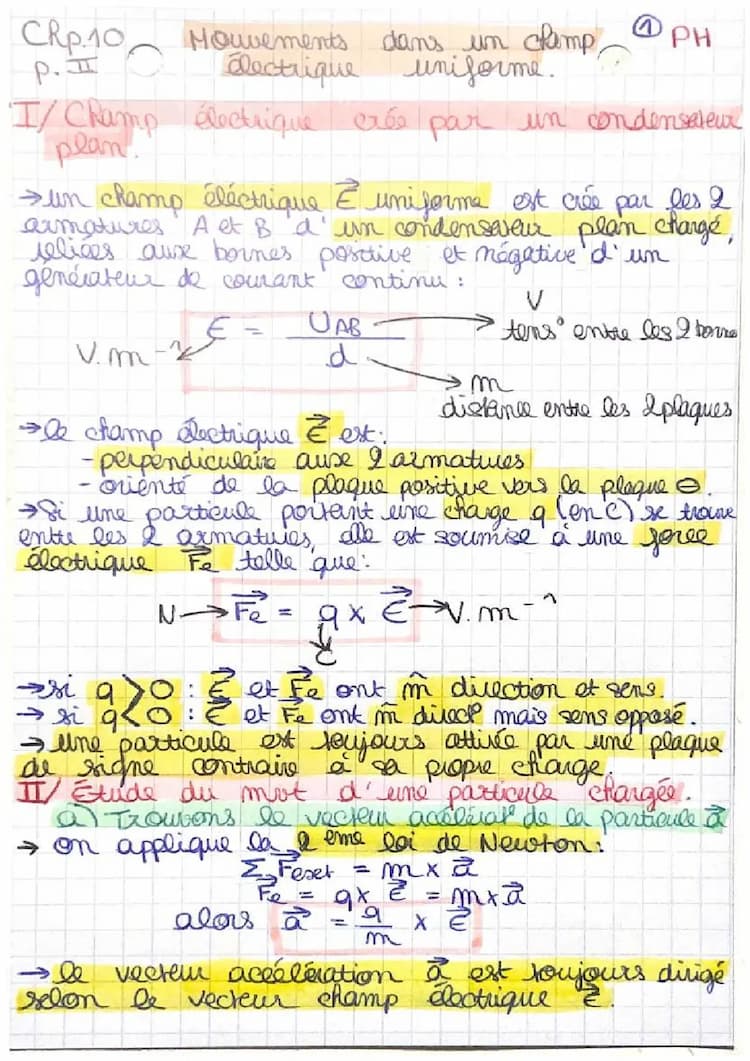 CRp.10 Mouvements dans un champ ① PH
p. II électrique uniforme.
I/ Champ électrique crée par un condensateur
plan.
→ un champ éléctrique E⃗ uniforme est crée par les 2
armatures A et B d'un condensateur plan chargé,
reliées aux bornes positive et négative d'un
générateur de courant continu :
V
E = U_AB / d → tens° entre les 2 bornes
V.m⁻¹
m
distance entre les 2 plaques
→ le champ électrique E⃗ est :
- perpendiculaire aux 2 armatures
- orienté de la plaque positive vers la plaque ⊖.
→ Si une particule portant une charge q (en C) se trouve
entre les 2 armatures, elle est soumise à une force
électrique F⃗e telle que :
N → F⃗e = q x E⃗ → V.m⁻¹
C
→ si q > 0 : E⃗ et F⃗e ont m̂ direction et sens.
→ si q < 0 : E⃗ et F⃗e ont m̂ direct° mais sens opposé.
→ une particule est toujours attirée par une plaque
de signe contraire à sa propre charge
II/ Étude du mvt d'une particule chargée.
a) Trouvons le vecteur accélérat° de la particule a⃗
→ on applique la 2 ème loi de Newton :
Σ F⃗ext = m x a⃗
F⃗e = q x E⃗ = m x a⃗
alors a⃗ = q/m x E⃗
→ le vecteur accélération a⃗ est toujours dirigé
selon le vecteur champ électrique E⃗.